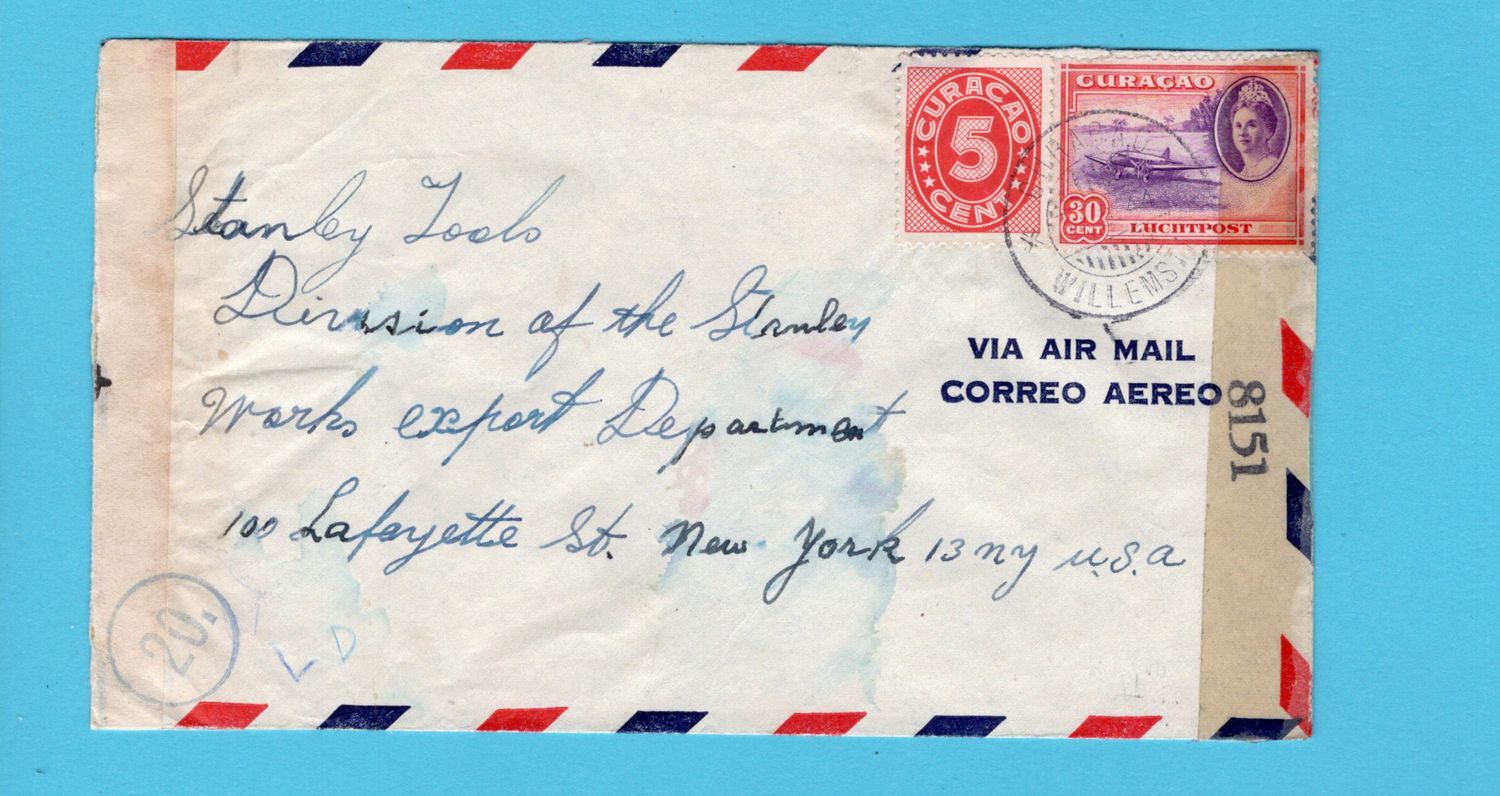 CURACAO
5
CENT
CURAÇAO
30
CENT
LUCHTPOST
Stanley Tools
Division of the Stanley
Works export Department
100 Lafayette St. New York 13 ny u.s.a
VIA AIR MAIL
CORREO AEREO
8151
20.
L D